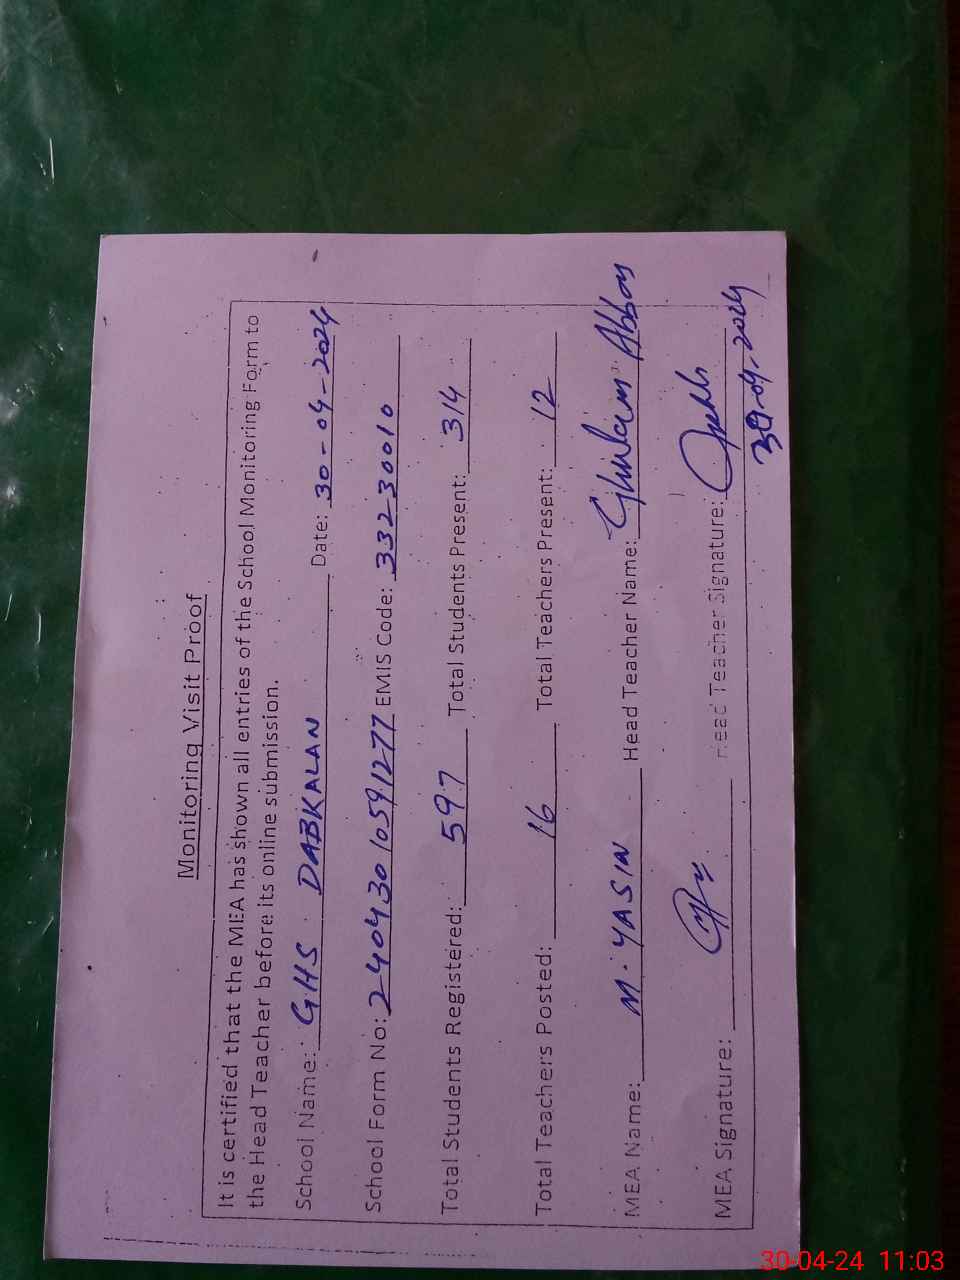 Monitoring Visit Proof
It is certified that the MEA has shown all entries of the School Monitoring Form to
the Head Teacher before its online submission.
School Name: GHS DABKALAN Date: 30-04-2024
School Form No: 24043010591277 EMIS Code: 33230010
Total Students Registered: 597 Total Students Present: 314
Total Teachers Posted: 16 Total Teachers Present: 12
MEA Name: M. YASIN Head Teacher Name: Ghulam Abbas
MEA Signature: Head Teacher Signature:
30-04-2024
30-04-24 11:03